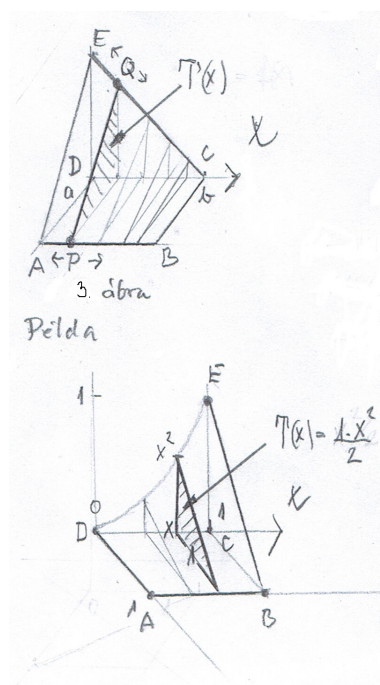 E
Q
T(x)
x
D
C
a
b
A
P
B
3. ábra
Példa
1
E
x²
T(x) = 1·x²/2
x
0
1
D
x
C
1
0
1
A
B